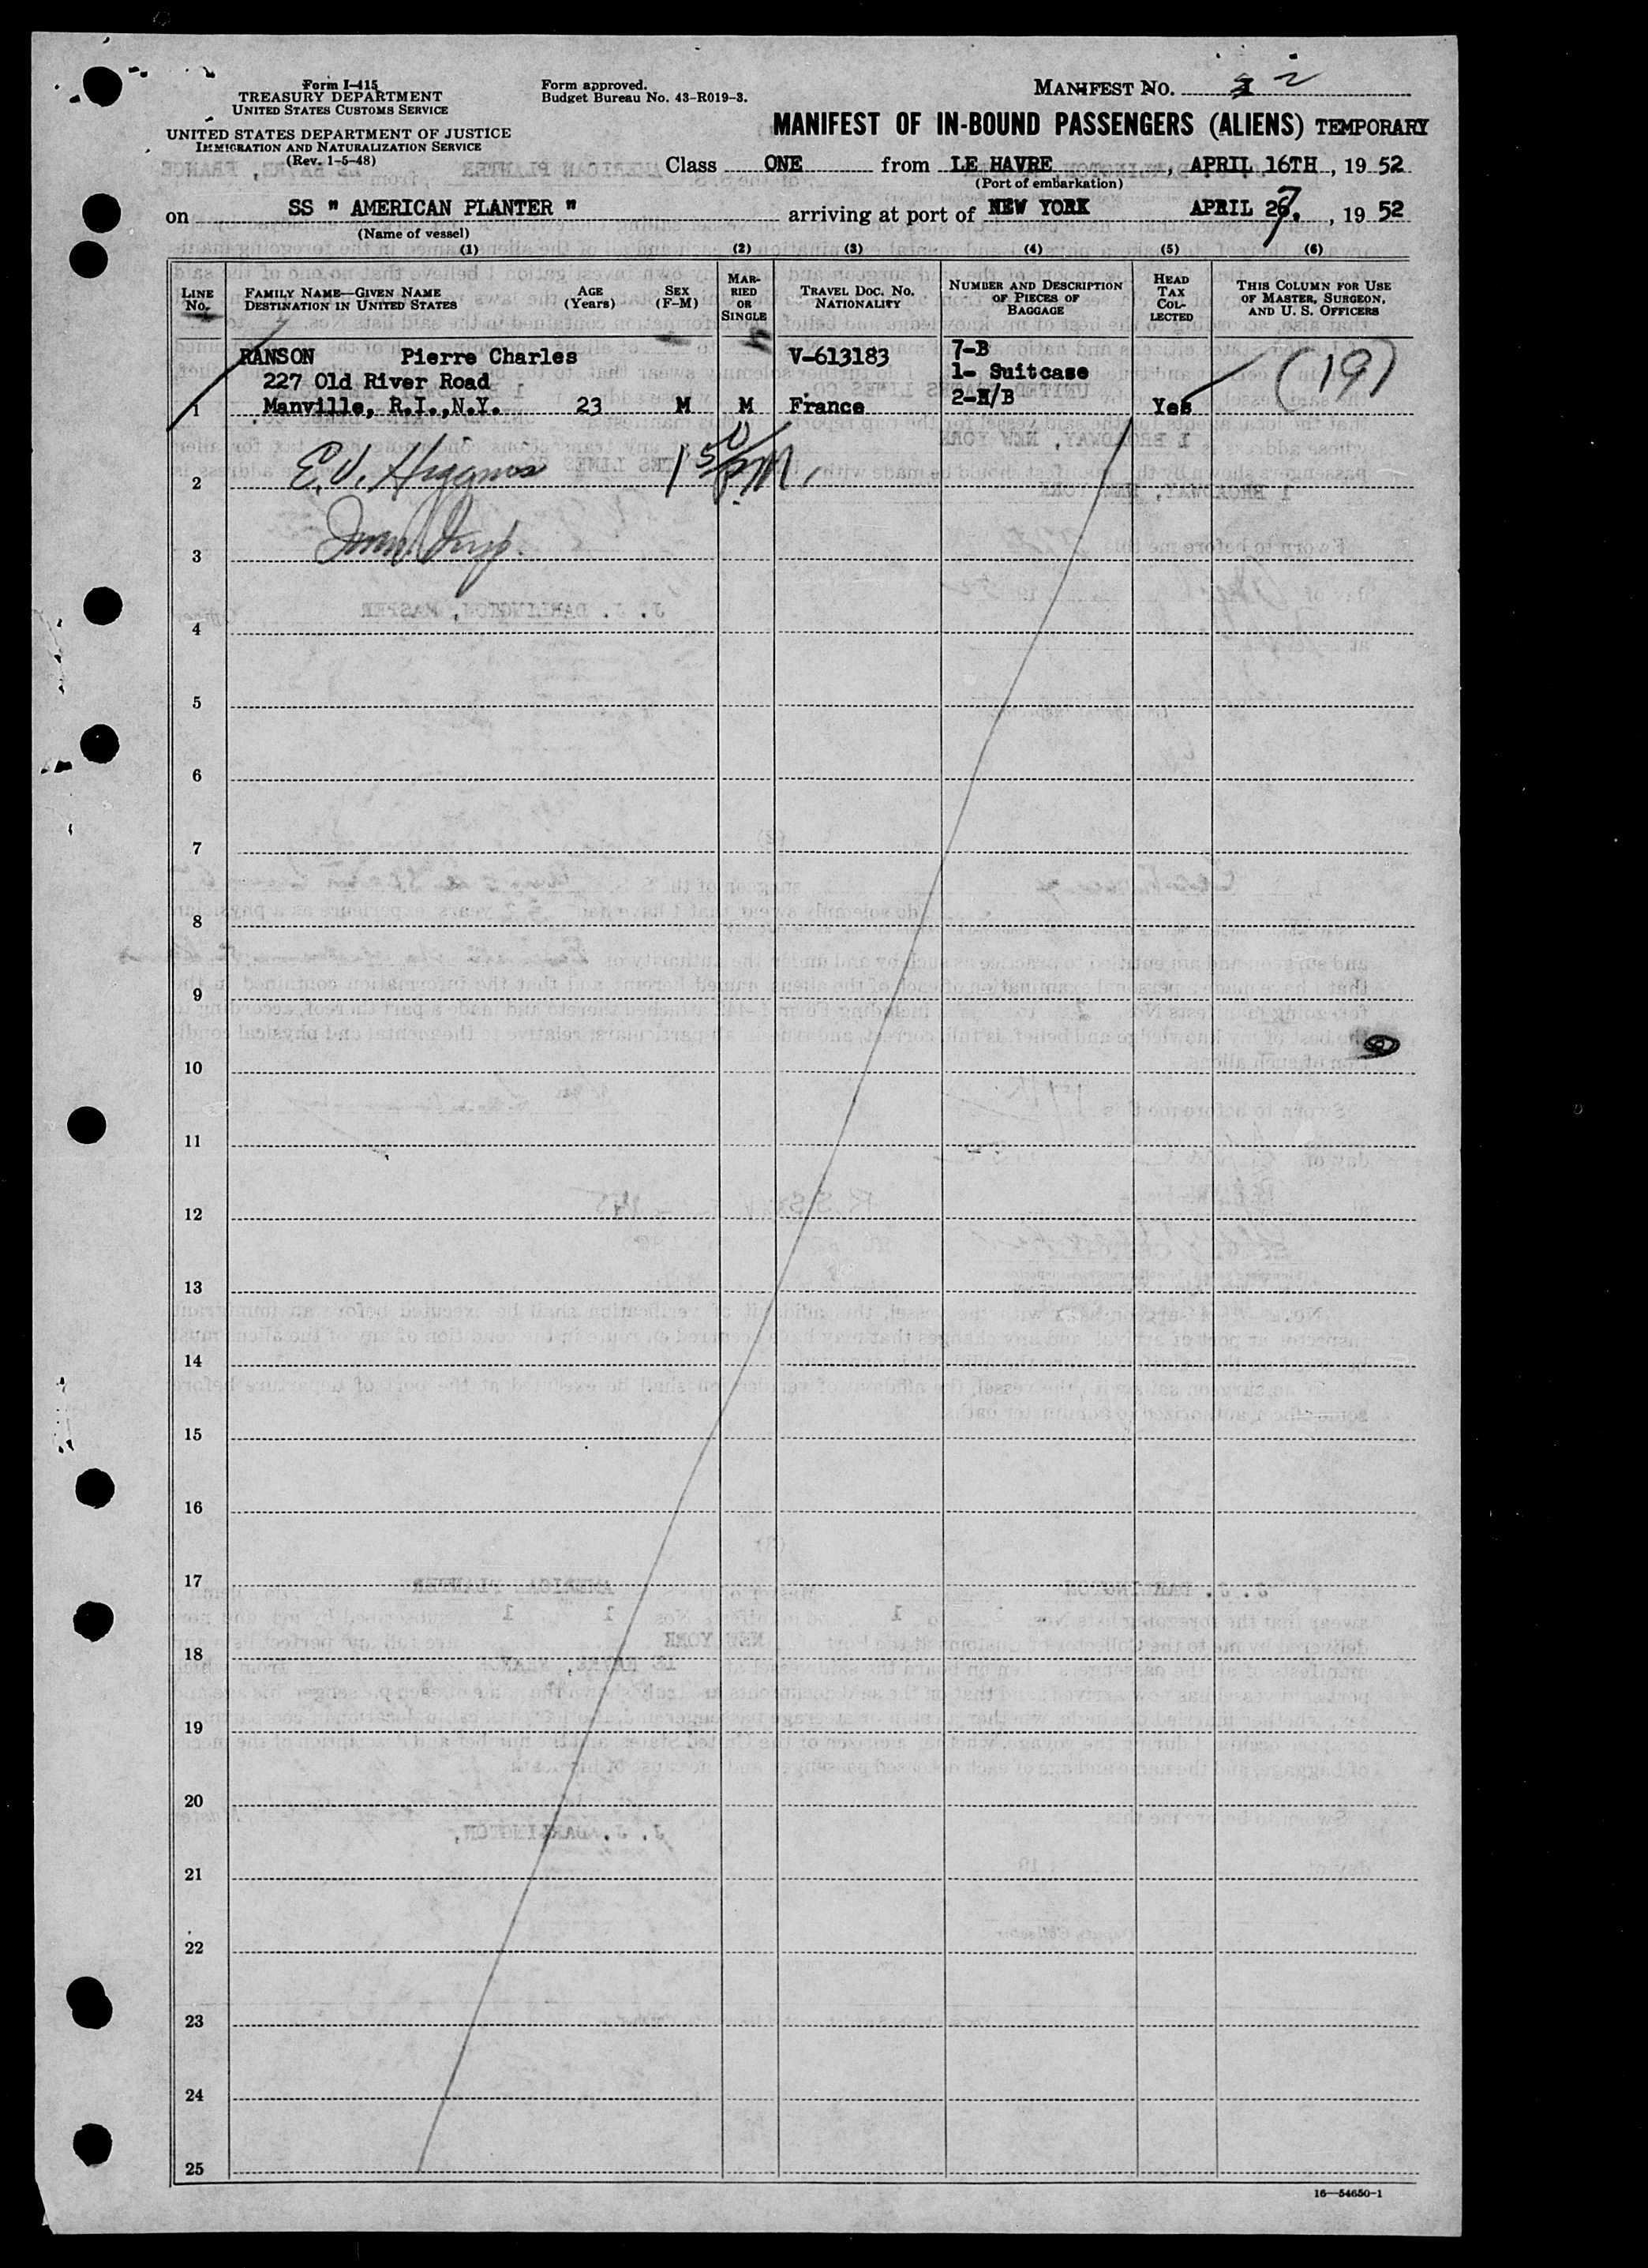 Form I-415
TREASURY DEPARTMENT
UNITED STATES CUSTOMS SERVICE
UNITED STATES DEPARTMENT OF JUSTICE
IMMIGRATION AND NATURALIZATION SERVICE
(Rev. 1-5-48)
Form approved.
Budget Bureau No. 43-R019-3.
MANIFEST NO. 2
MANIFEST OF IN-BOUND PASSENGERS (ALIENS) TEMPORARY
Class ONE from LE HAVRE, APRIL 16TH, 1952
(Port of embarkation)
on SS " AMERICAN PLANTER " arriving at port of NEW YORK APRIL 27, 1952
(Name of vessel)
(1) (2) (3) (4) (5) (6)
LINE No. FAMILY NAME—GIVEN NAME DESTINATION IN UNITED STATES AGE (Years) SEX (F-M) MARRIED OR SINGLE TRAVEL DOC. NO. NATIONALITY NUMBER AND DESCRIPTION OF PIECES OF BAGGAGE HEAD TAX COLLECTED THIS COLUMN FOR USE OF MASTER, SURGEON, AND U. S. OFFICERS
RANSON Pierre Charles V-613183 7-B (19)
227 Old River Road 1- Suitcase
1 Manville, R.I.,N.Y. 23 M M France 2-H/B Yes
2 E.V. Higgins 1 50 PM
3 Imm. Insp.
4
5
6
7
8
9
10
11
12
13
14
15
16
17
18
19
20
21
22
23
24
25
16—54650-1